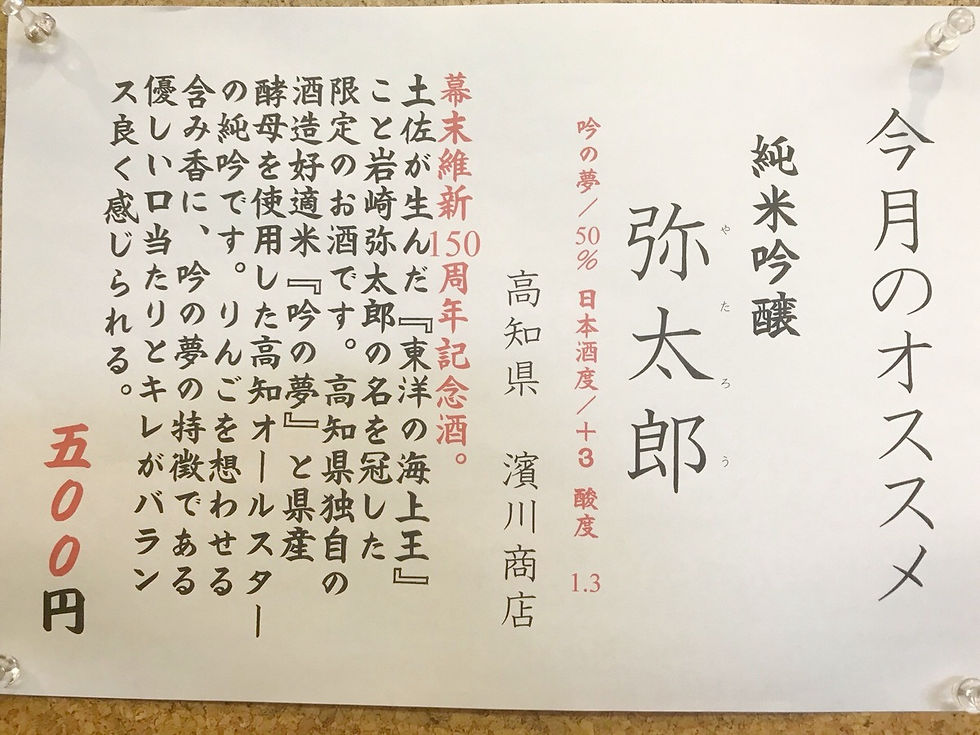 今月のオススメ
純米吟醸
弥太郎
やたろう
吟の夢/50% 日本酒度/+3 酸度 1.3
高知県 濵川商店
幕末維新150周年記念酒。
土佐が生んだ『東洋の海上王』
こと岩崎弥太郎の名を冠した
限定のお酒です。高知県独自の
酒造好適米『吟の夢』と県産
酵母を使用した高知オールスター
の純吟です。りんごを想わせる
含み香に、吟の夢の特徴である
優しい口当たりとキレがバラン
ス良く感じられる。
五〇〇円